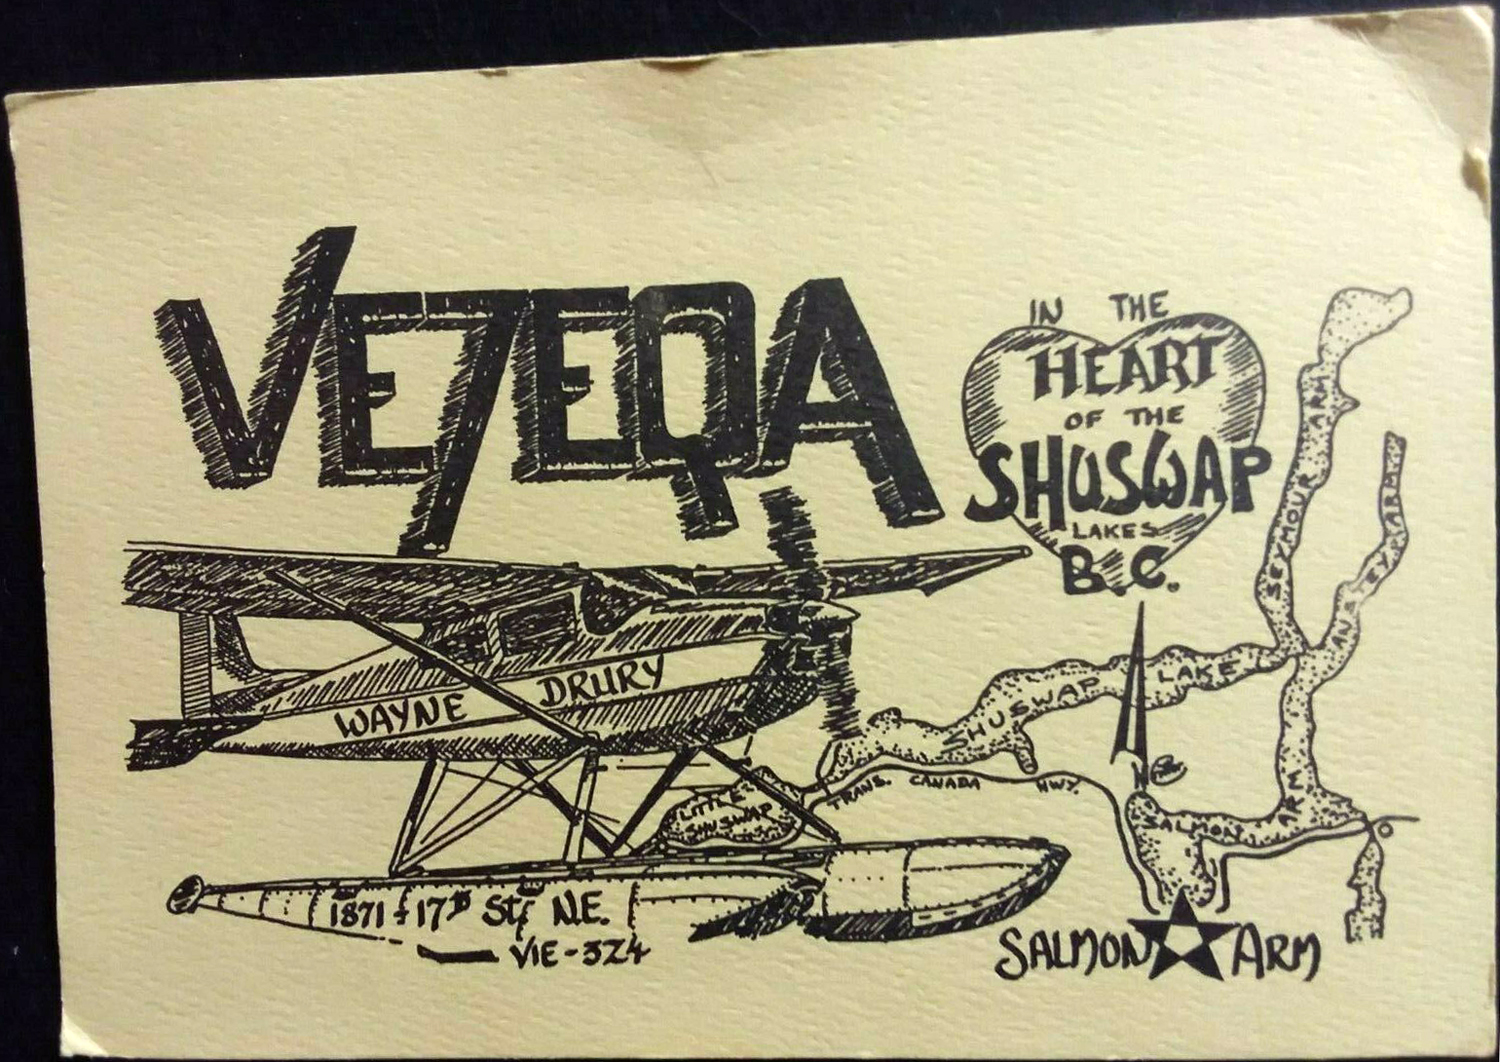 VE7EQA
IN THE
HEART
OF THE
SHUSWAP
LAKES
B.C.
WAYNE DRURY
1871 - 17TH St. N.E.
VIE-3Z4
LITTLE
SHUSWAP
SHUSWAP LAKE
SEYMOUR ARM
ANSTEY ARM
TRANS. CANADA HWY.
SALMON ARM
SALMON ARM